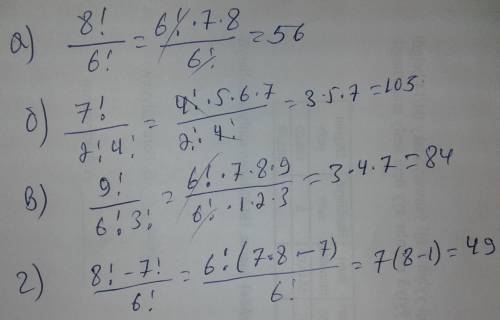 а) 8!/6! = 6!·7·8/6! = 56
б) 7!/2!4! = 4!·5·6·7/2!·4! = 3·5·7 = 105
в) 9!/6!3! = 6!·7·8·9/6!·1·2·3 = 3·4·7 = 84
г) 8!-7!/6! = 6!(7·8-7)/6! = 7(8-1) = 49